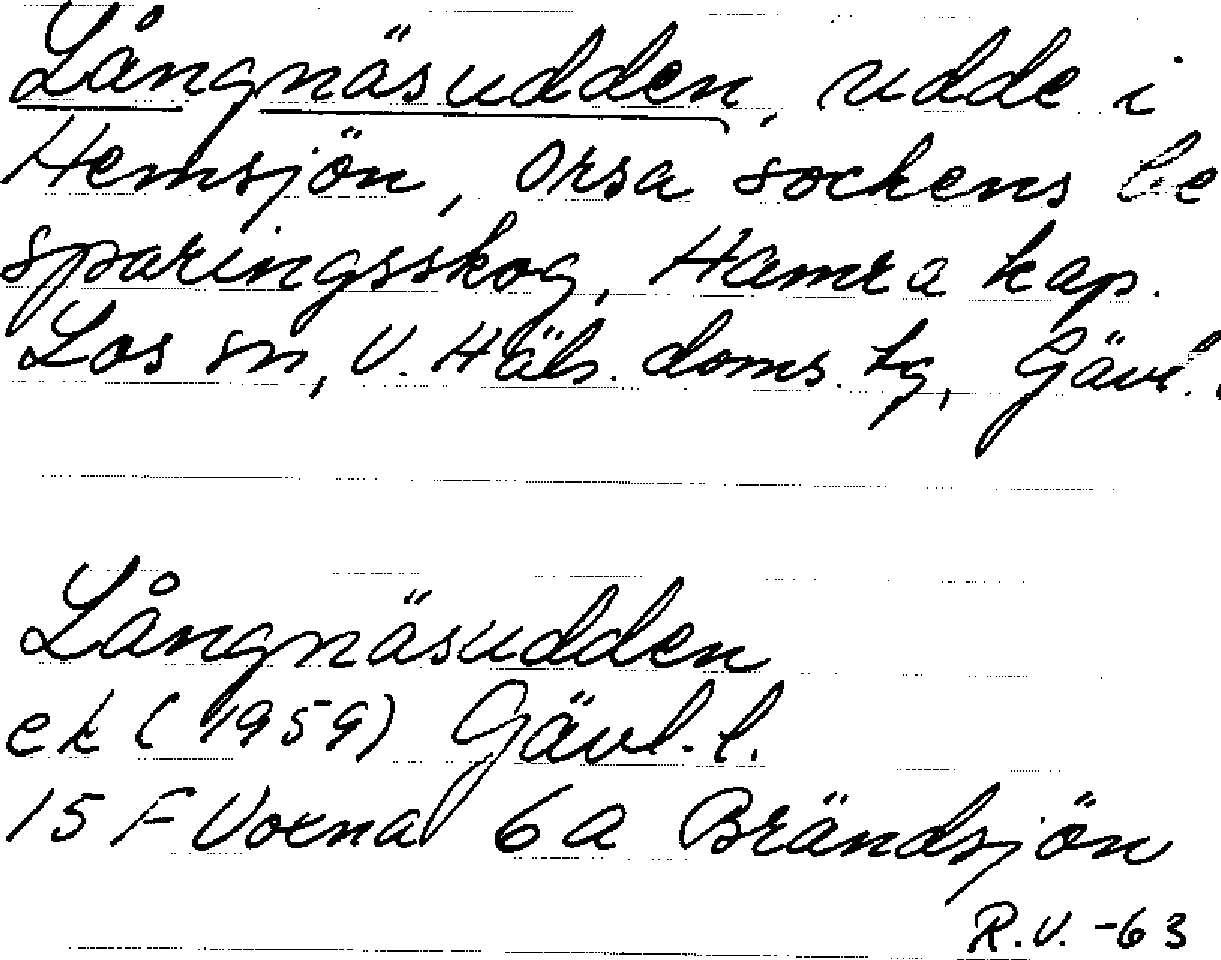 Långnäsudden, udde i
Hemsjön, Orsa sockens be
sparingsskog, Hamra kap.
Los sn, V. Häls. doms. tg, Gävl.
Långnäsudden
ek (1959) Gävl. l.
15 F Voxna 6a Brändsjön
R.V. -63